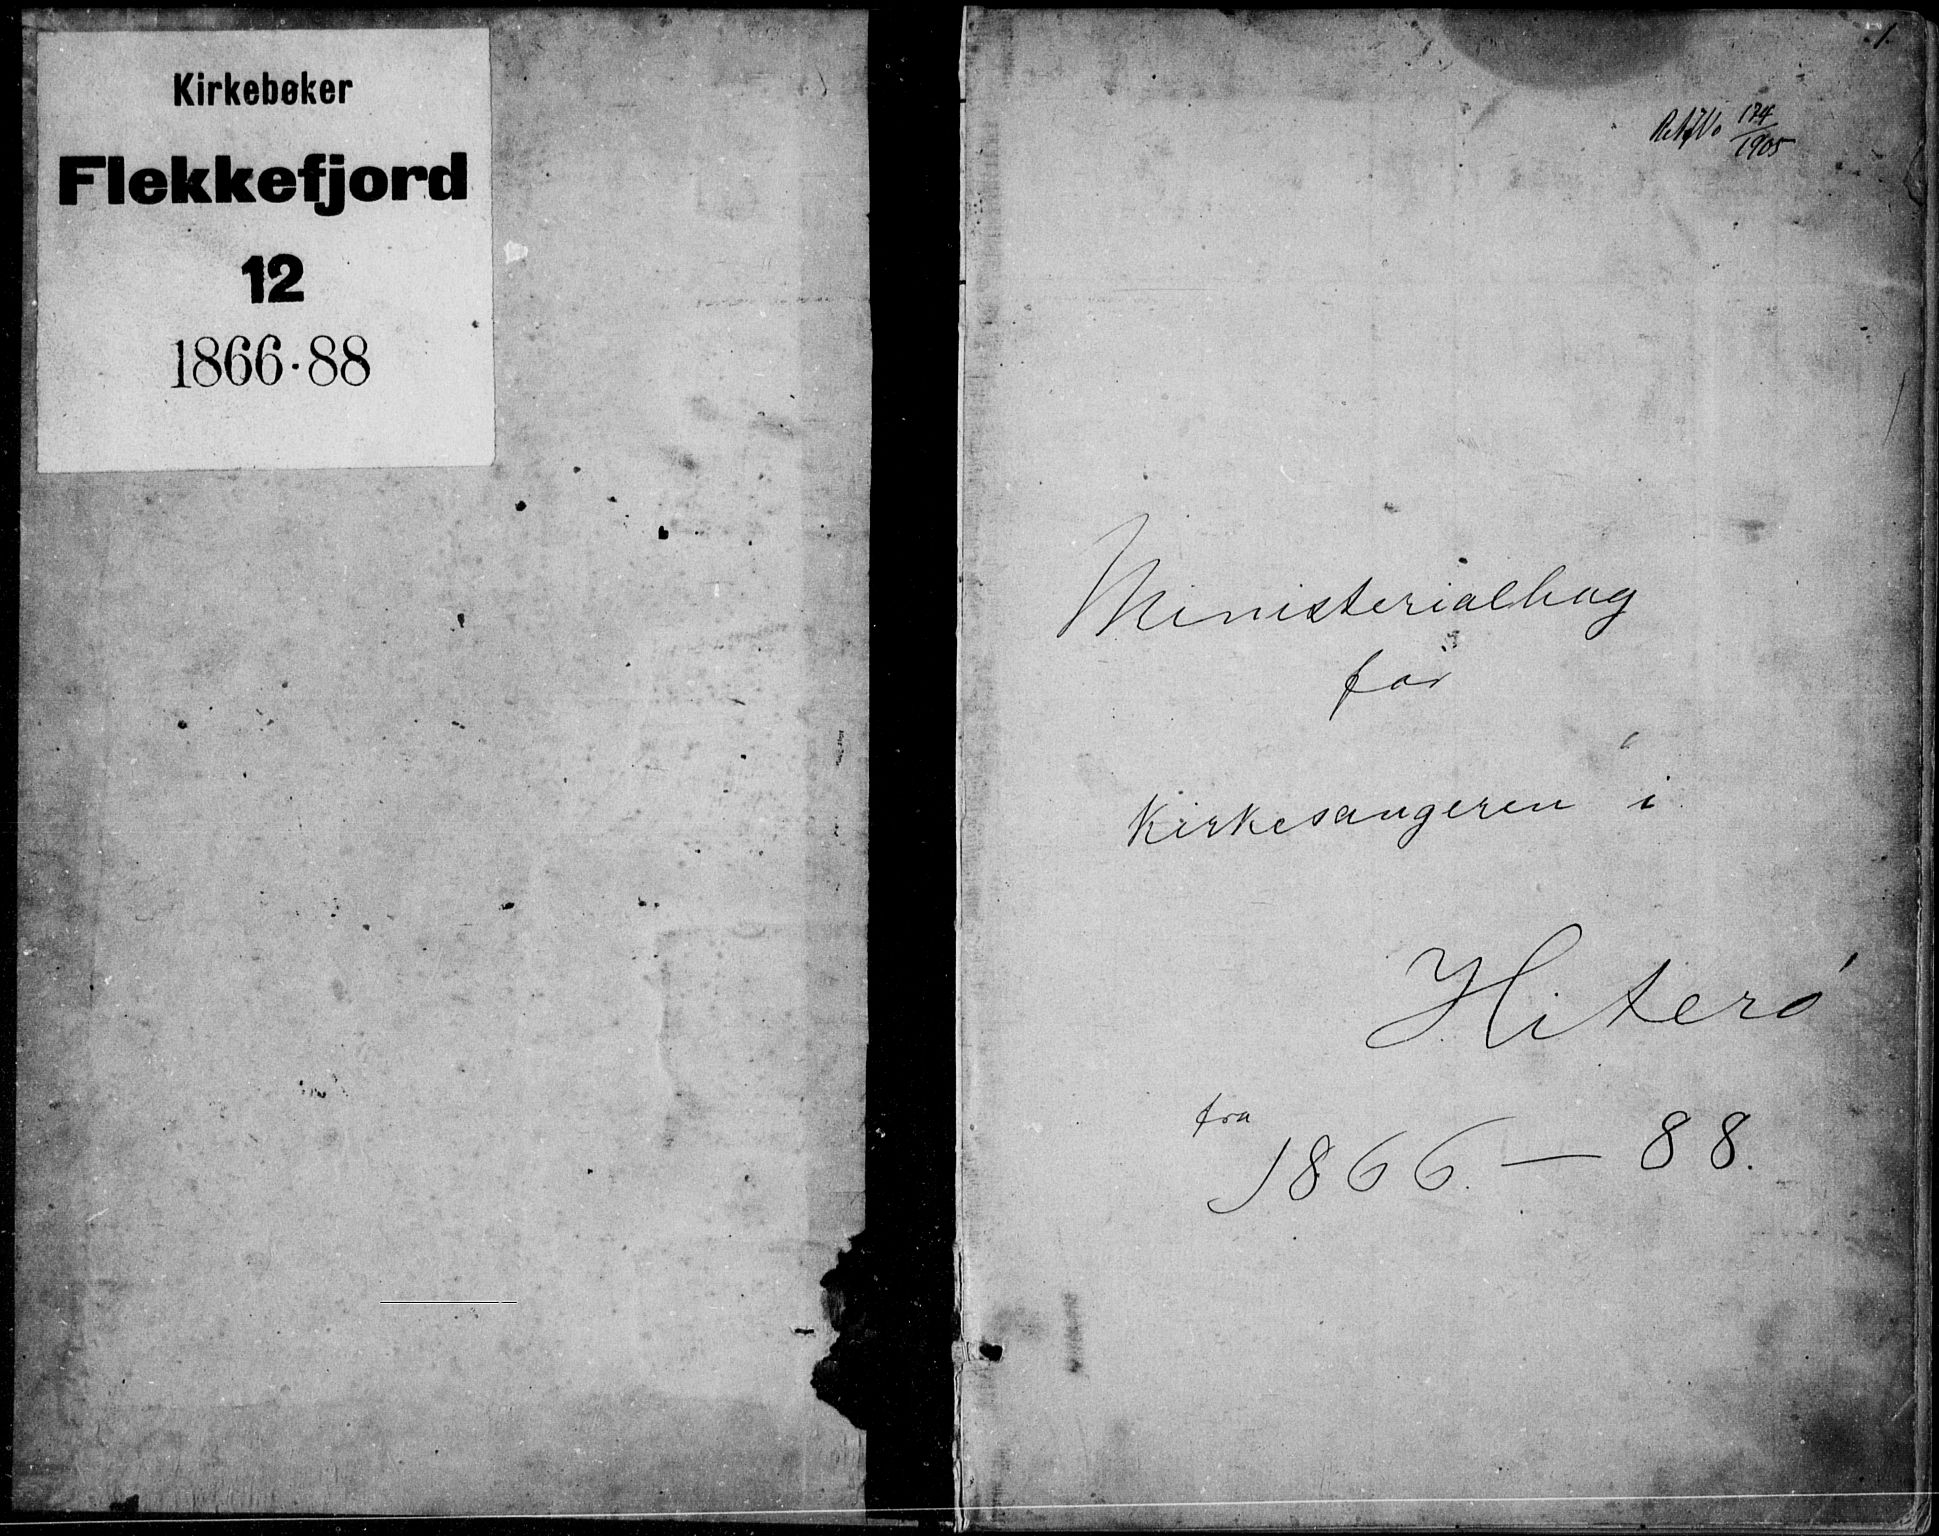 Kirkebøker
Flekkefjord
12
1866-88
1.
174
1905
Ministerialbog
for
Kirkesangeren i
Hiterö
fra
1866 — 88.